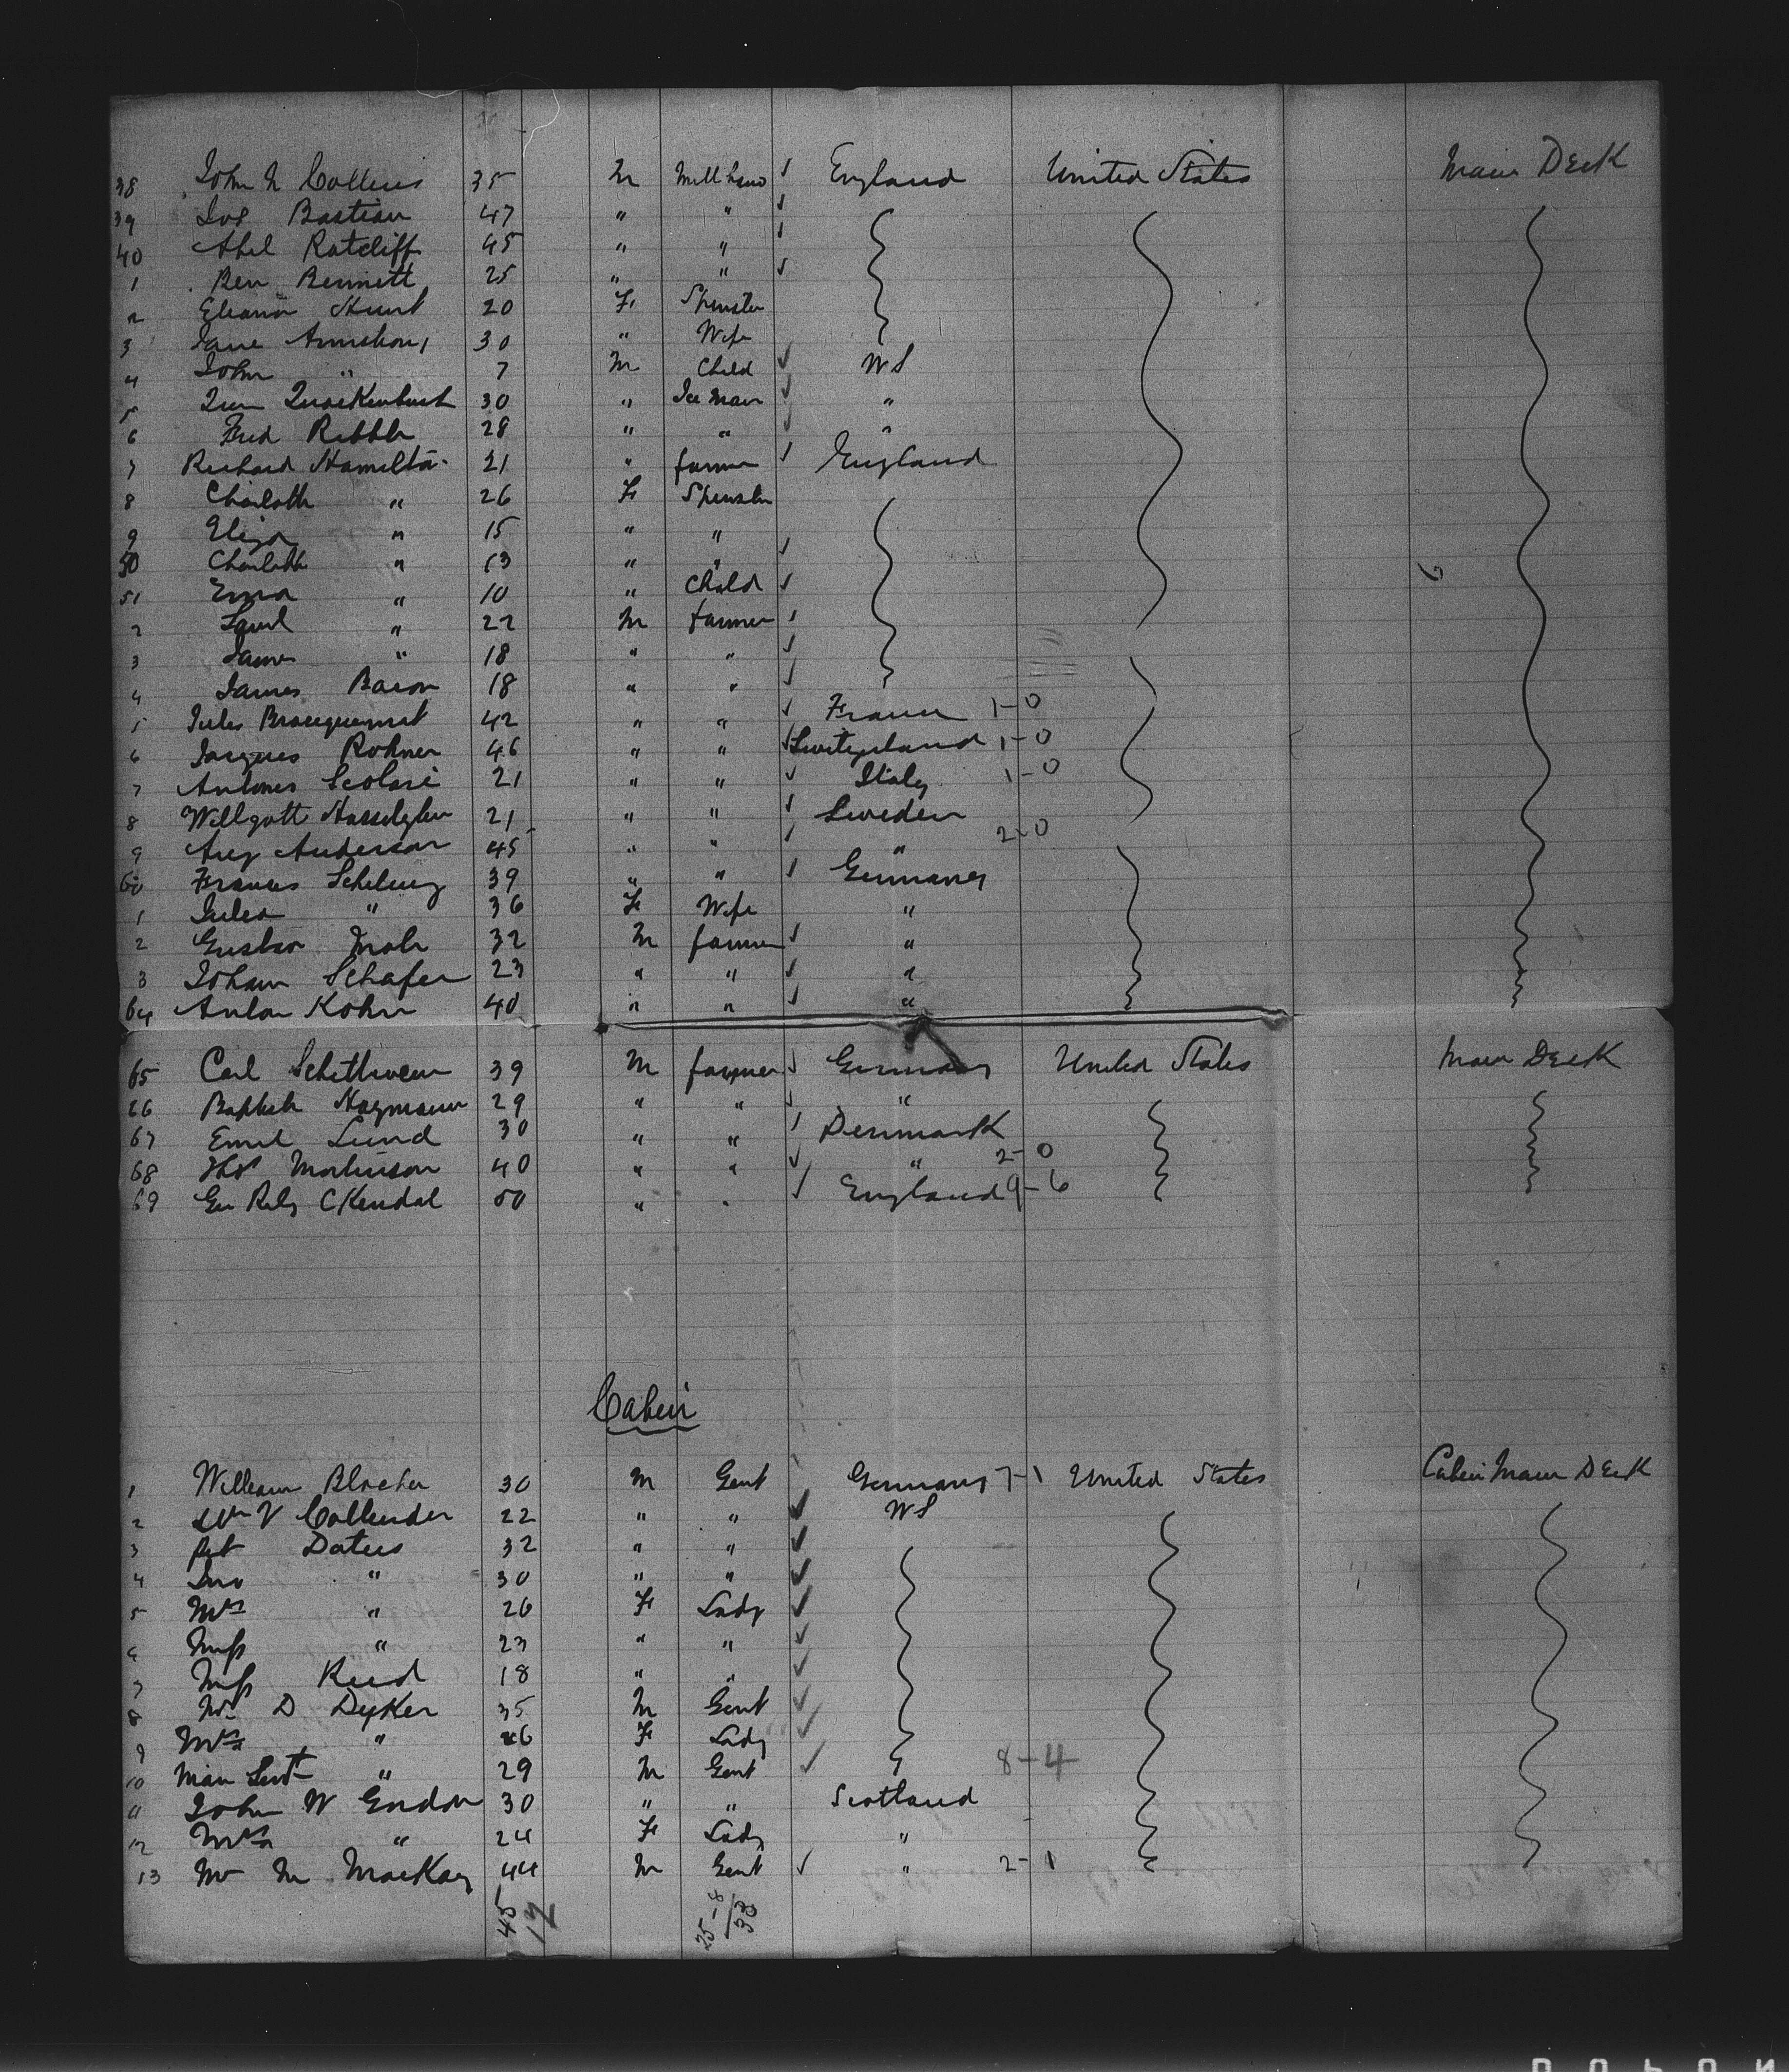 38 John N Collins 35 M Mill hand England United States Main Deck
39 Jos Bastian 47 " "
40 Abel Ratcliff 45 " "
1 Ben Bennett 25 " "
2 Eleanor Hunt 20 F Spinster
3 Jane 30 " Wife
4 John " 7 M Child
5 Quackenbush 30 " Ice Man "
6 Fred Ribble 28 " " "
7 Richard Hamilton 21 " farmer England
8 Charlotte " 26 F Spinster
9 Eliza " 15 " "
50 Charlotte " 13 " "
51 Emma " 10 " Child
2 " 22 M farmer
3 James " 18 " "
4 James Bacon 18 " "
5 Jules 42 " " France 1-0
6 Jacques Rohner 46 " " Switzerland 1-0
7 Antonio Scolari 21 " " Italy 1-0
8 Willgott 21 " " Sweden
9 Aug Anderson 45 " " " 2-0
60 39 " " Germany
1 " 36 F Wife "
2 Gustav 32 M farmer "
3 Johann Schafer 23 " " "
64 Anton Kohn 40 " " "
65 Carl 39 M farmer Germany United States Main Deck
66 29 " " "
67 Emil Lund 30 " " Denmark
68 40 " " " 2-0
69 Kendal 50 " " England 9-6
Cabin
1 William Blocher 30 M Gent Germany 7-1 United States Cabin Main Deck
2 Wm V Collender 22 " "
3 32 " "
4 Jno " 30 " "
5 Mrs " 26 F Lady
6 Miss " 23 " "
7 Miss Reed 18 " "
8 Mr D Dyker 35 M Gent
9 Mrs " F Lady
10 Man Servt " 29 M Gent 8-4
11 John W 30 " " Scotland
12 Mrs " 24 F Lady "
13 Mr M MacKay 44 M Gent " 2-1
45
12
25-8
/33